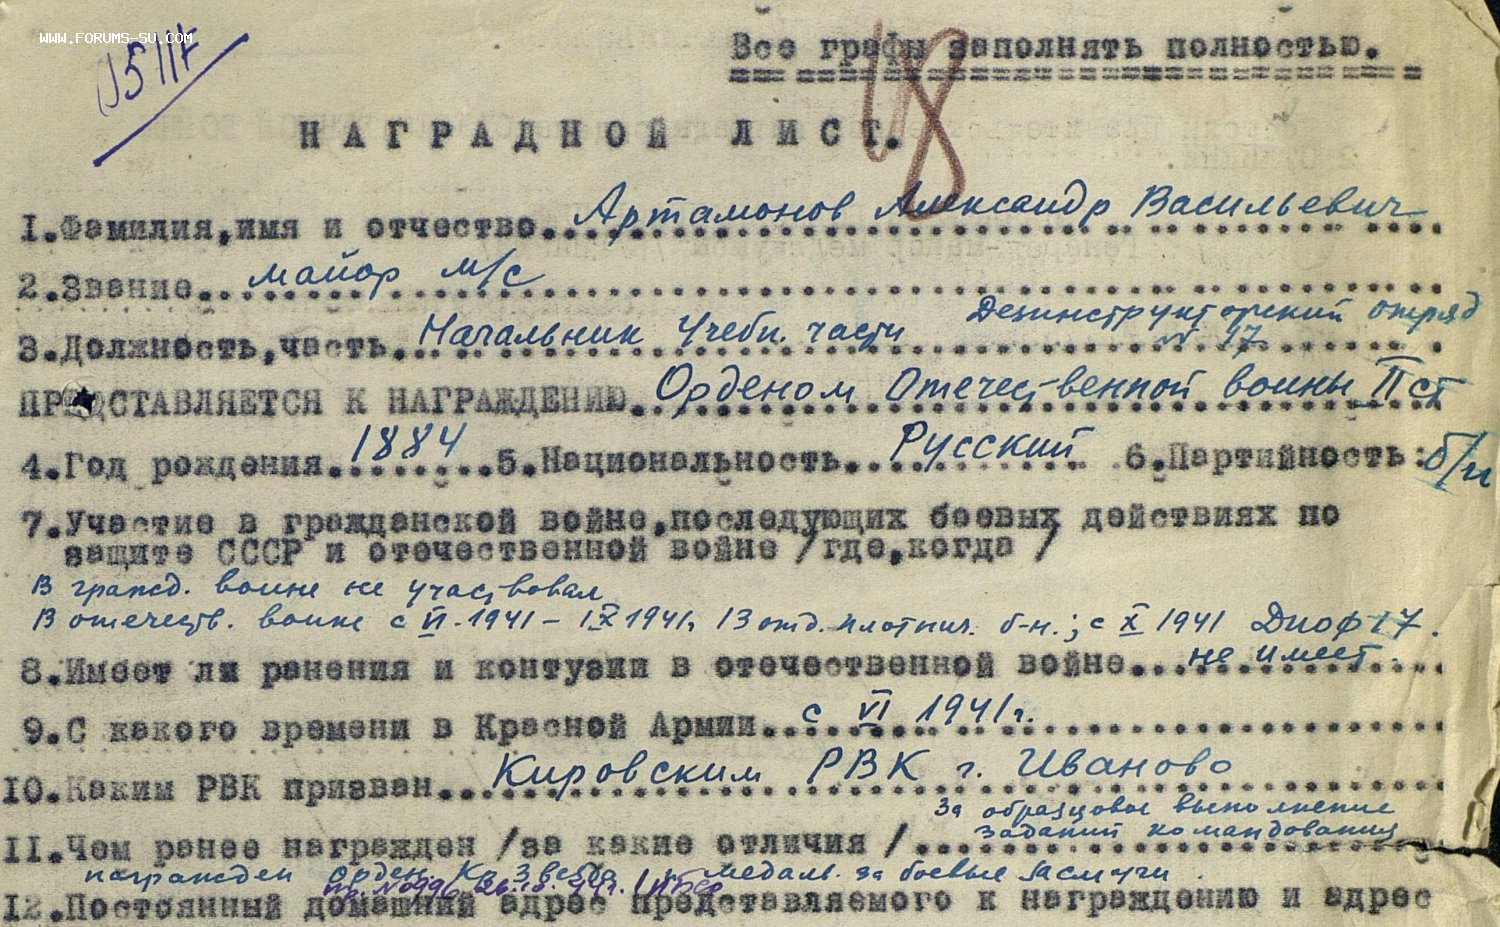 WWW.FORUMS-SU.COM
Все графы заполнять полностью.
18
НАГРАДНОЙ ЛИСТ.
1.Фамилия,имя и отчество. Артамонов Александр Васильевич
2.Звание. майор м/с
3.Должность,часть. Начальник учебн. части Дезинструкторский отряд
N 17
ПРЕДСТАВЛЯЕТСЯ К НАГРАЖДЕНИЮ. Орденом Отечественной войны II ст
4.Год рождения. 1884 5.Национальность. Русский 6.Партийность: б/п
7.Участие в гражданской войне,последующих боевых действиях по
защите СССР и отечественной войне /где,когда/
В гражд. войне не участвовал
В отечеств. войне с VI.1941 - IX 1941г 13 отд. плотнич. б-н.; с X 1941 Диоф 17.
8.Имеет ли ранения и контузии в отечественной войне. не имеет
9.С какого времени в Красной Армии. с VI 1941г.
10.Каким РВК призван. Кировским РВК г. Иваново
За образцовое выполнение
11.Чем ранее награжден /за какие отличия/ заданий командования
награжден орден. Кр. Звезда и медаль. за боевые заслуги.
12.Постоянный домашний адрес представляемого к награждению и адрес